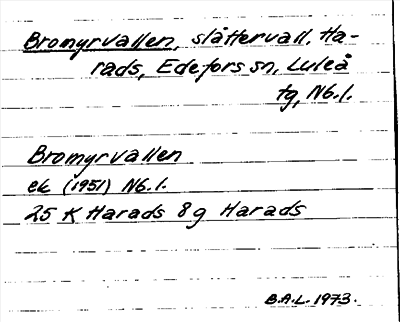 Bromyrvallen, slåttervall, Ha-
rads, Edefors sn, Luleå
tg, Nb.l.
Bromyrvallen
ek (1951) Nb.l.
25 K Harads 8g Harads
B.A.L. 1973.